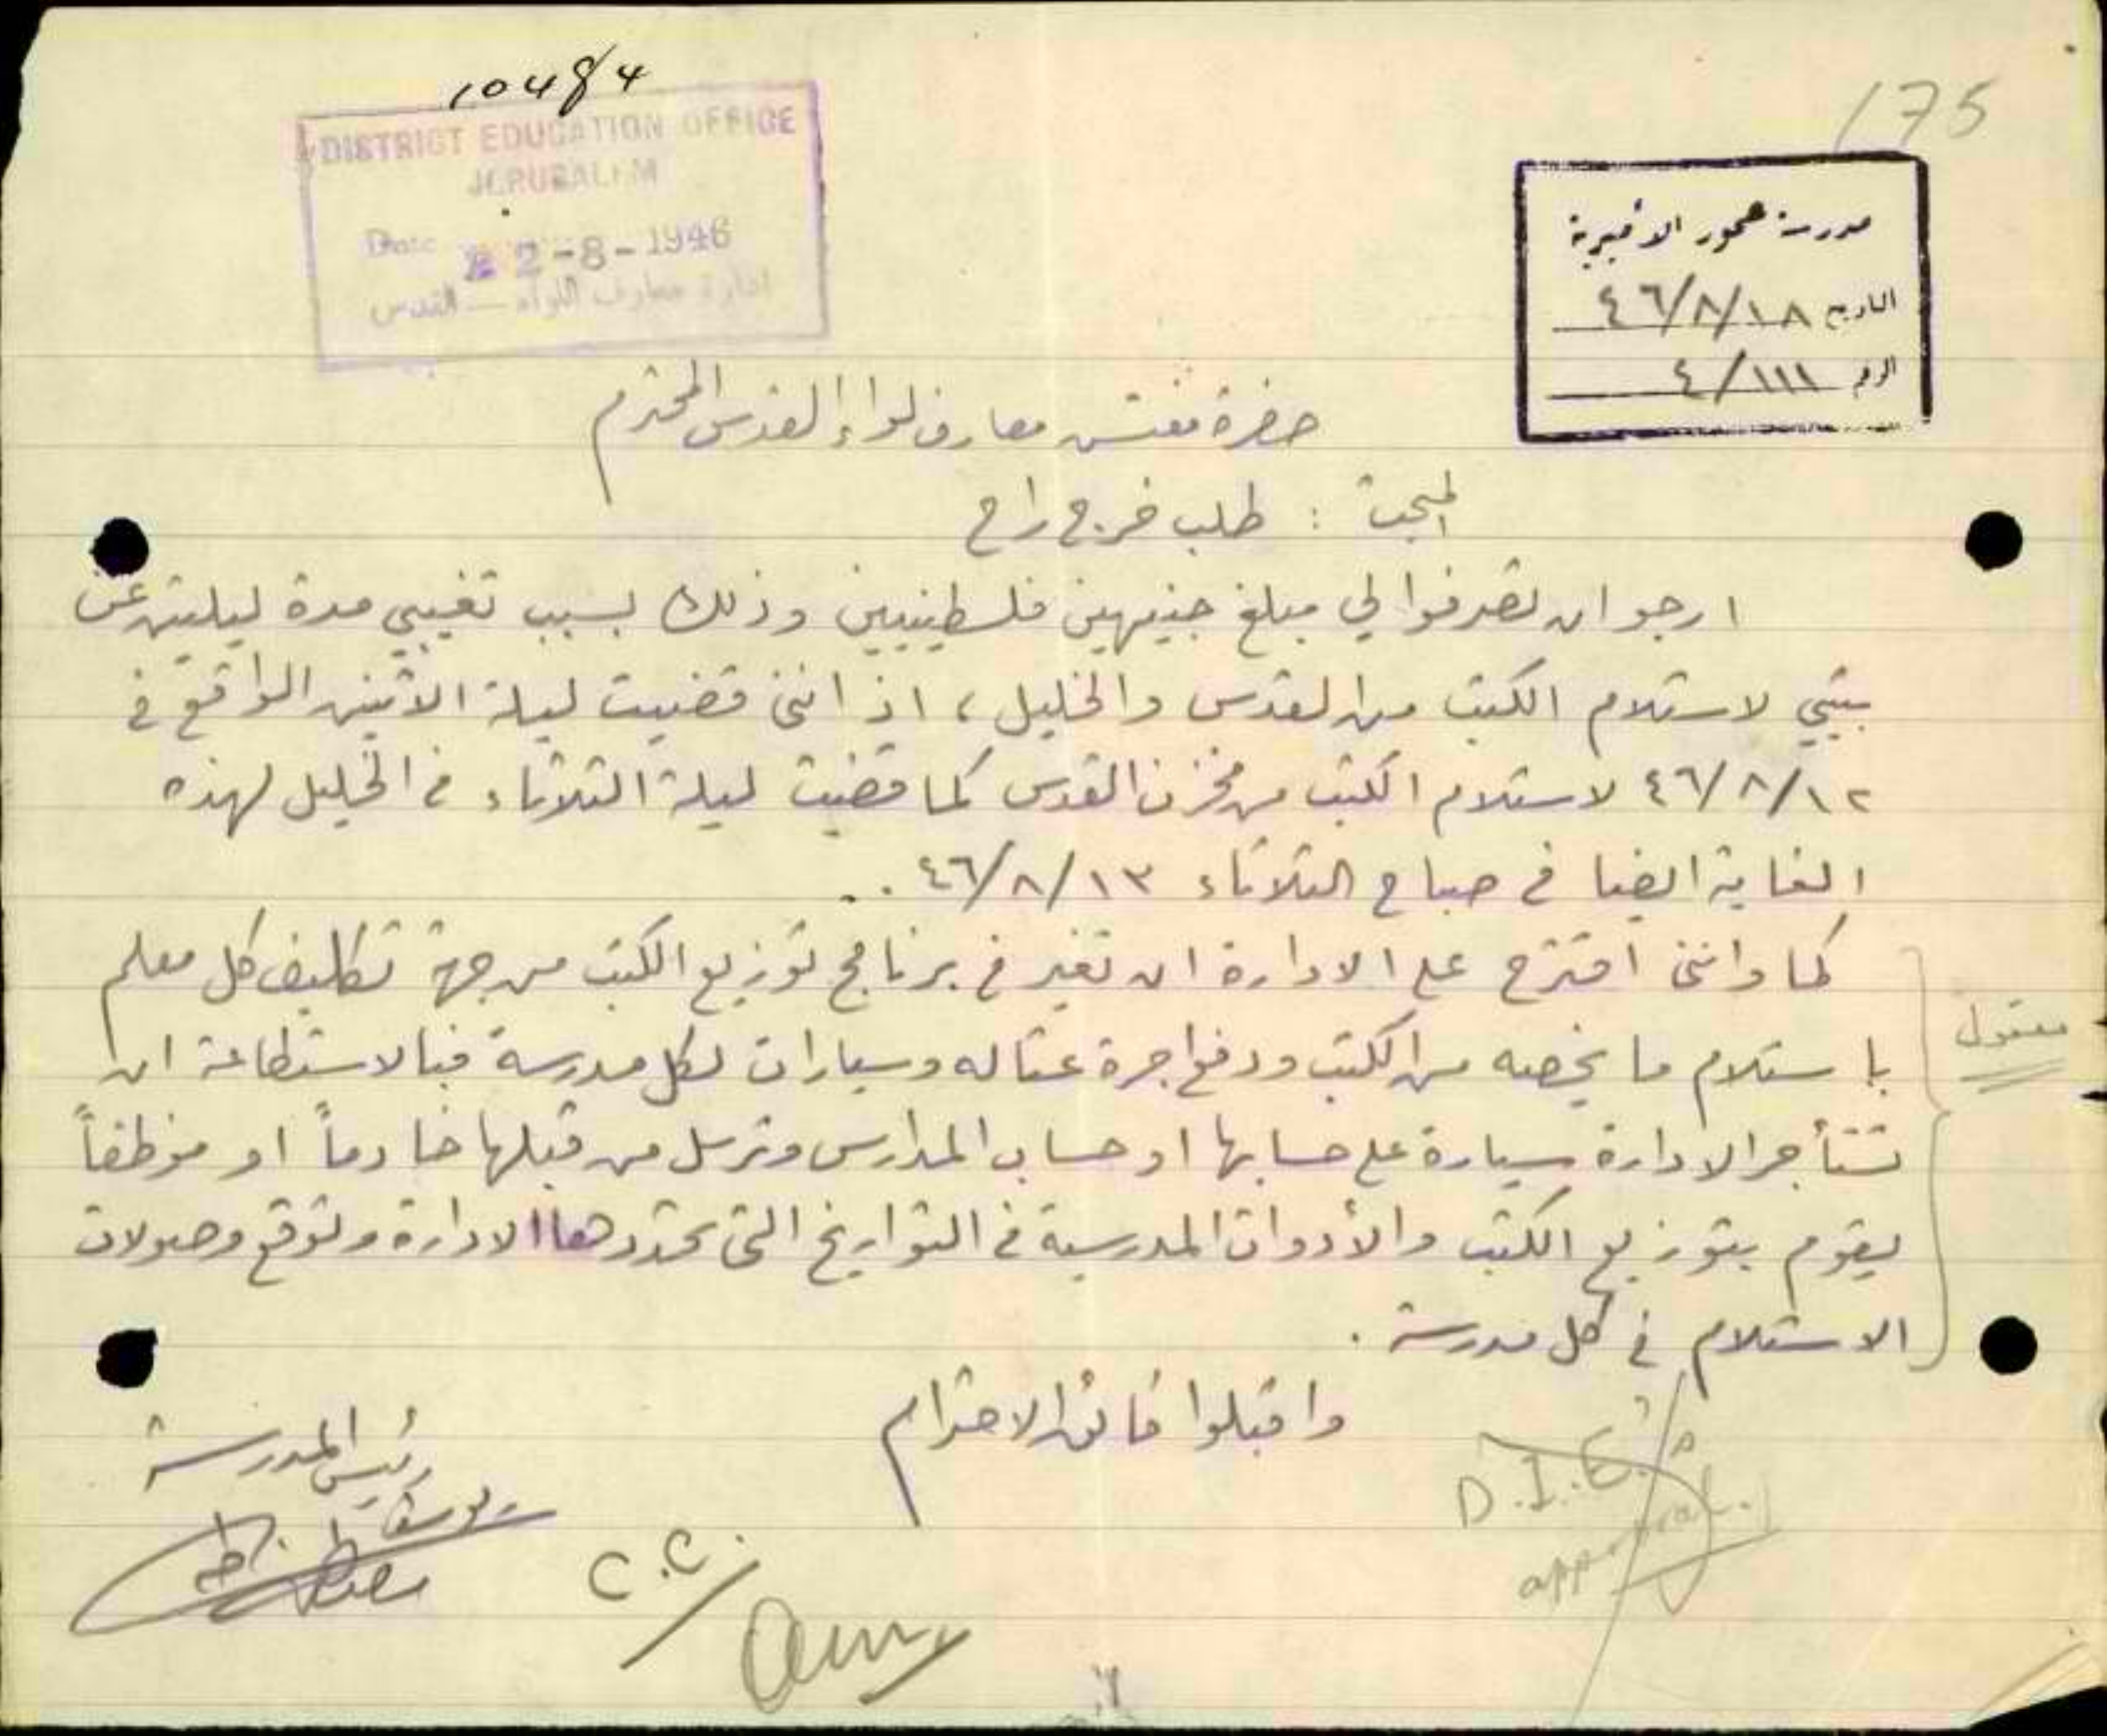 10484
175
DISTRICT EDUCATION OFFICE
JERUSALEM
Date 22-8-1946
ادارة معارف اللواء — القدس
مدرسة صحور الاميرية
التاريخ ٤٦/٨/١٨
الرقم ٤/١١١
حضرة مفتش معارف لواء القدس المحترم
المبحث : طلب خرج راح
ارجو ان تصرفوا لي مبلغ جنيهين فلسطينيين وذلك بسبب تغيبي مدة ليلتين عن
بيتي لاستلام الكتب من القدس والخليل ، اذ انني قضيت ليلة الاثنين الواقع في
٤٦/٨/١٢ لاستلام الكتب من مخزن القدس كما قضيت ليلة الثلاثاء في الخليل لهذه
الغاية ايضا في صباح الثلاثاء ٤٦/٨/١٣ ..
كما وانني اقترح على الادارة ان تغير في برنامج توزيع الكتب من جهة تكليف كل معلم
باستلام ما يخصه من الكتب ودفع اجرة عتاله وسيارات لكل مدرسة فبالاستطاعة ان
تستأجر الادارة سيارة على حسابها او حساب المدارس وترسل من قبلها خادماً او موظفاً
يقوم بتوزيع الكتب والأدوات المدرسية في التواريخ التي تحددها الادارة وتوقع وصولات
الاستلام في كل مدرسة .
معقول
واقبلوا فائق الاحترام
رئيس المدرسة
يوسف
D.I.E.'s
approval.
C.C.